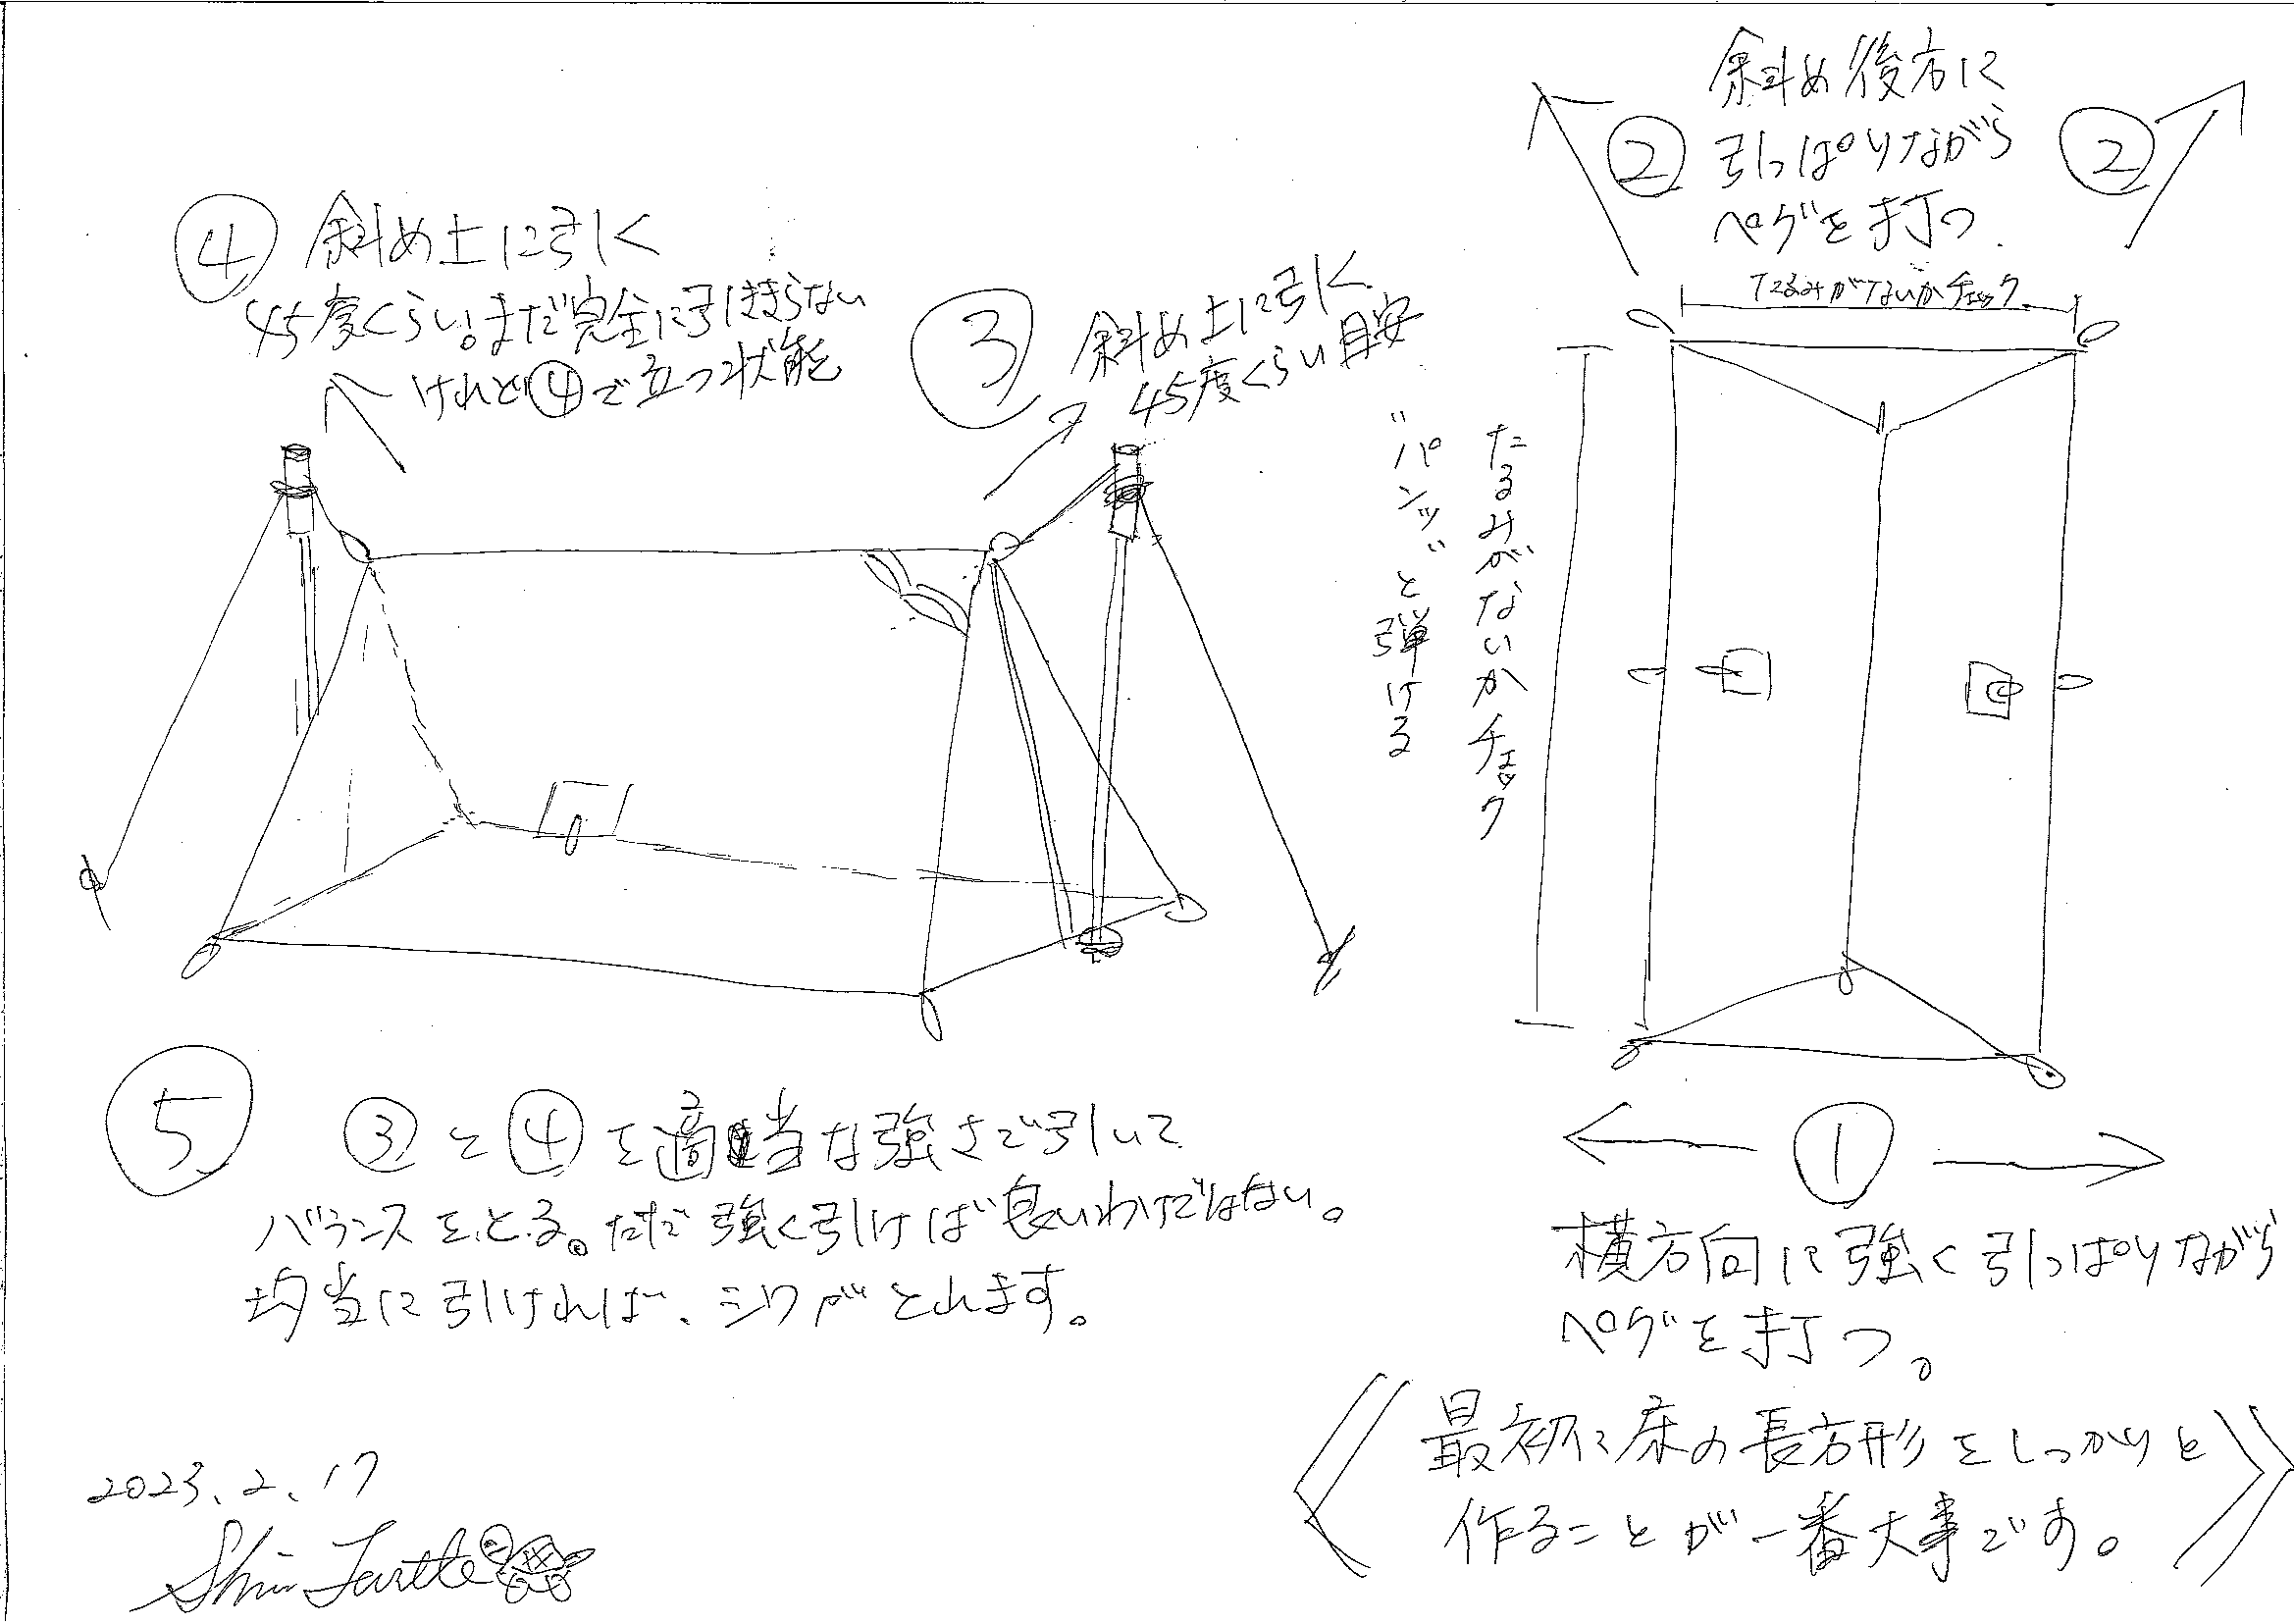 斜め後方に
② 引っぱりながら ②
ペグを打つ.
たるみがないかチェック
④ 斜め上に引く
45度くらい。まだ完全に引ききらない
けれど④で立つ状態
③ 斜め上に引く
45度くらい目安
たるみがないかチェック
"パンッ"と弾ける
①
横方向に強く引っぱりながら
ペグを打つ。
《最初に床の長方形をしっかりと
作ることが一番大事です。》
⑤ ③と④を適当な強さで引いて
バランスをとる。ただ強く引けば良いわけではない。
均当に引ければ、シワがとれます。
2023.2.17
Shin Turtle